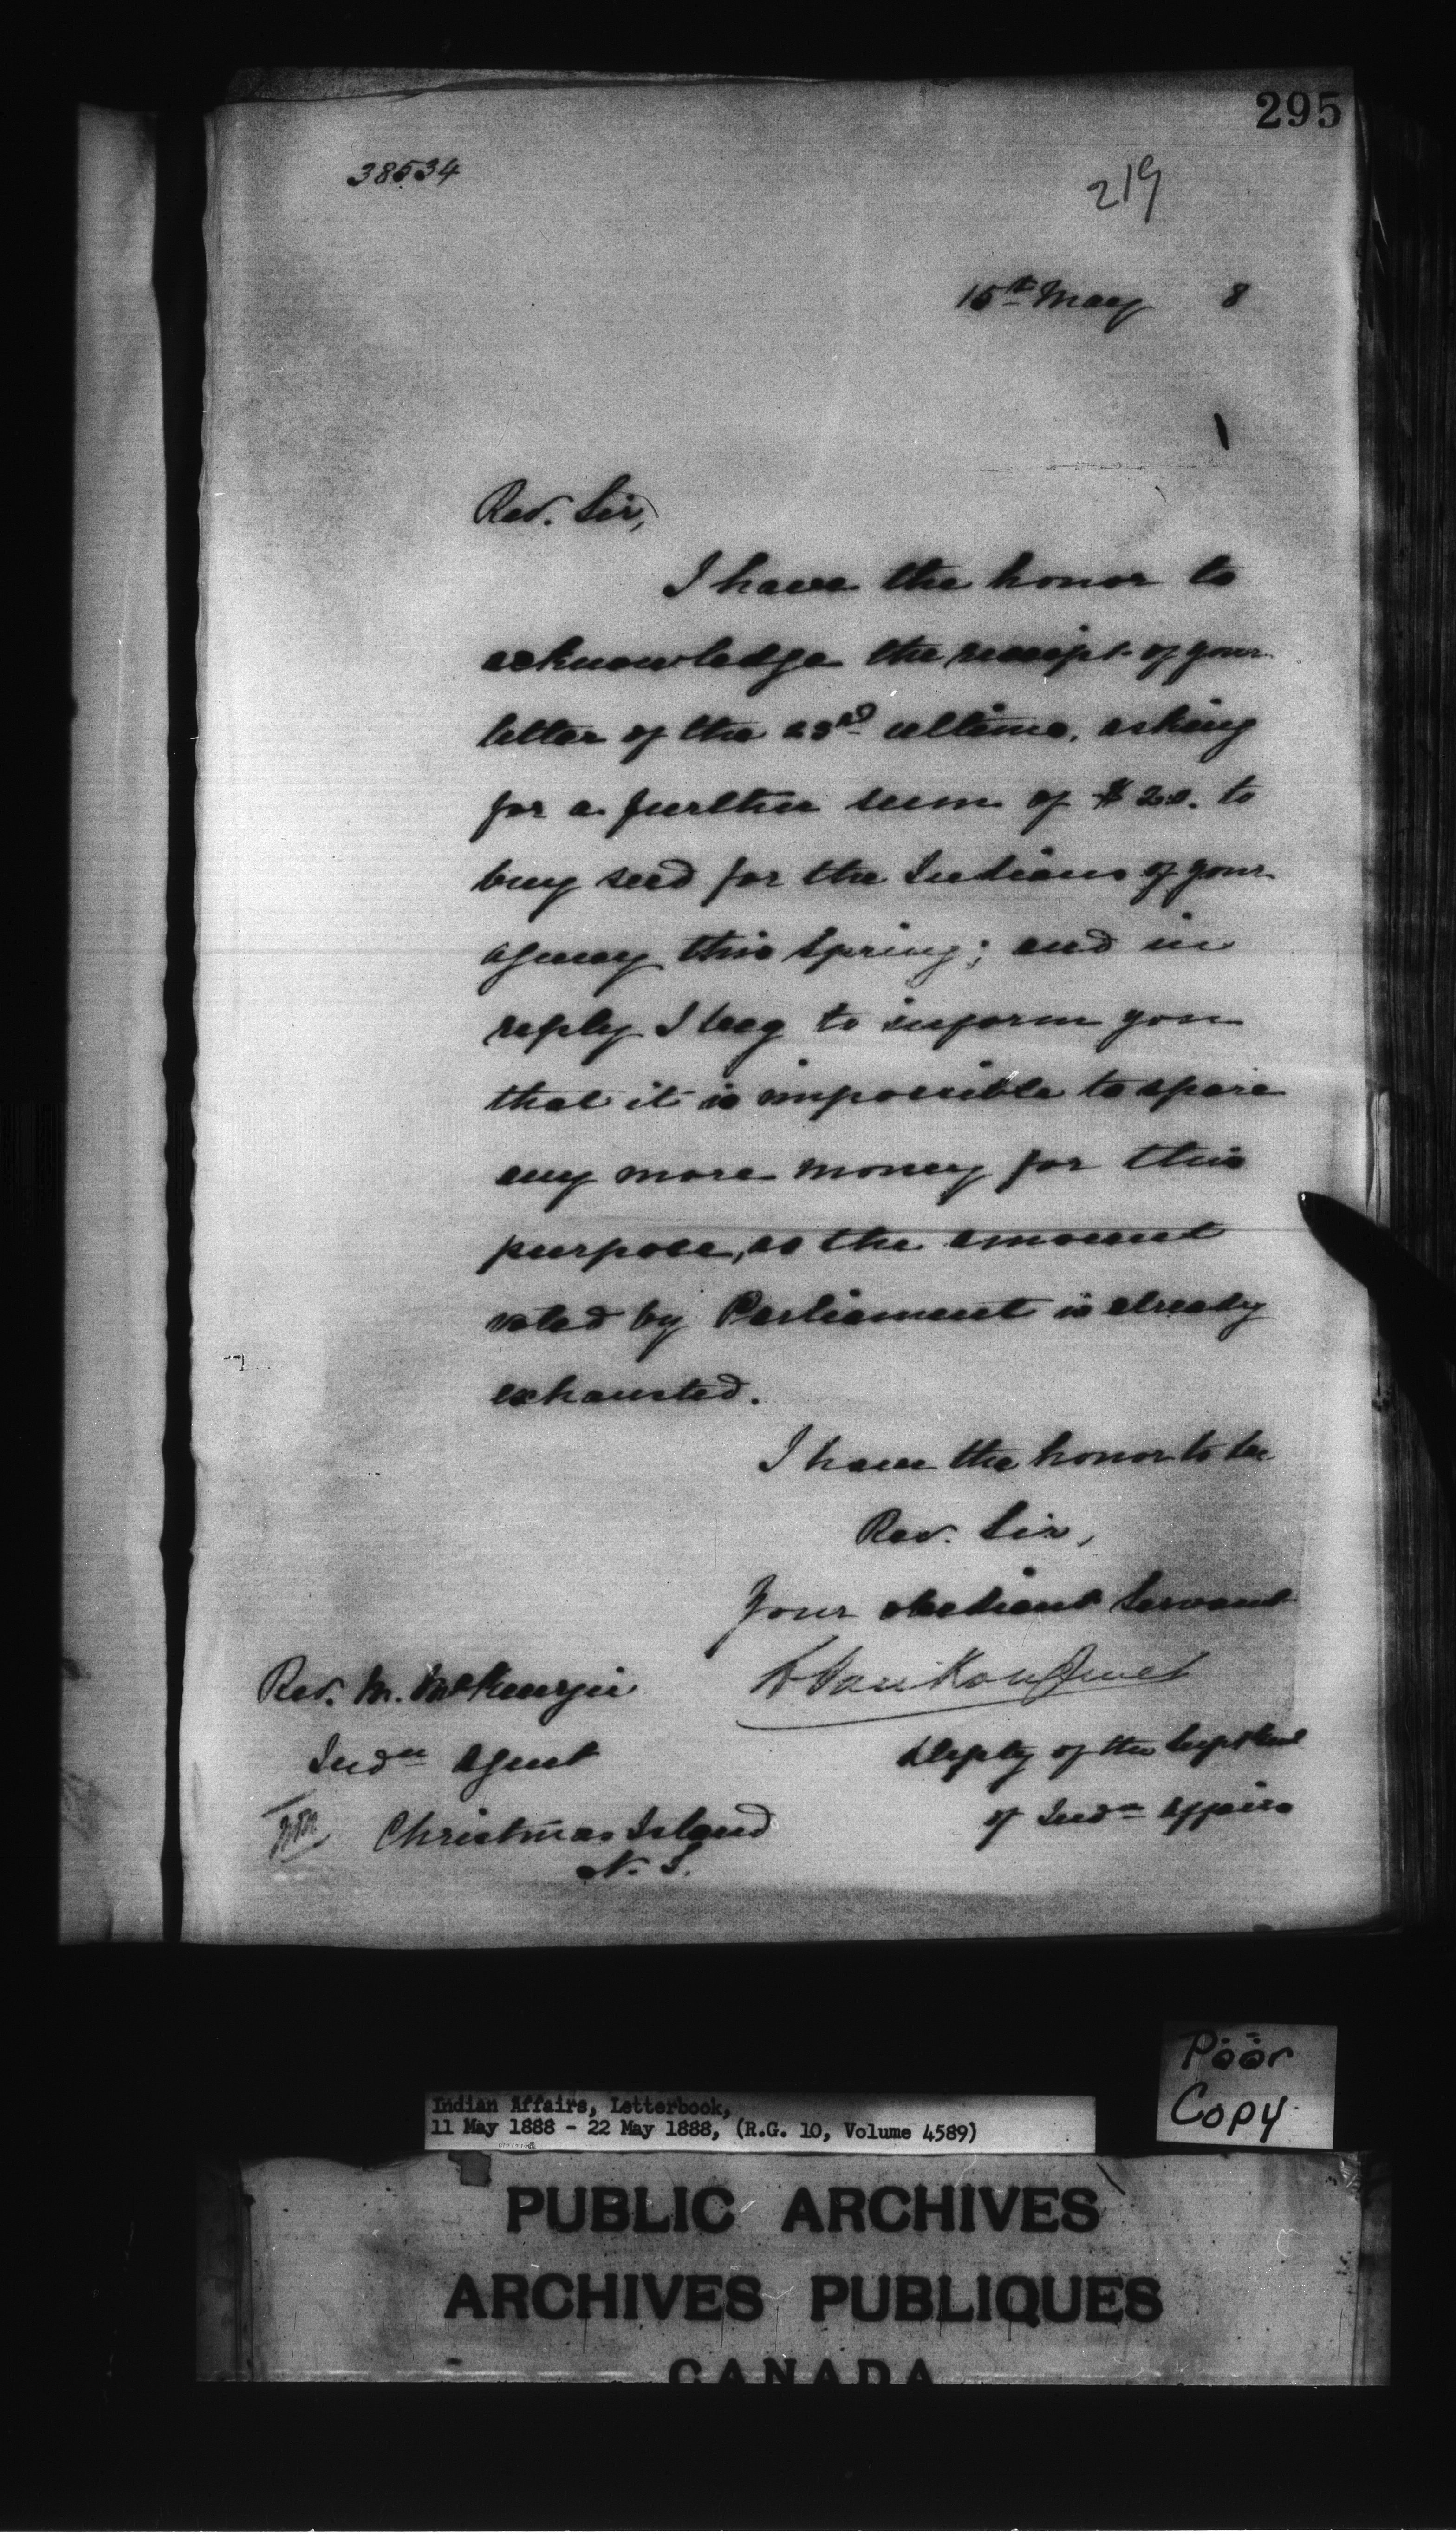 295
38534
219
15th May 8
Rev. Sir,
I have the honor to
acknowledge the receipt of your
letter of the 23rd ultimo, asking
for a further sum of $20. to
buy seed for the Indians of your
agency this Spring; and in
reply I beg to inform you
that it is impossible to spare
any more money for this
purpose, as the amount
voted by Parliament is already
exhausted.
I have the honor to be
Rev. Sir,
Your obedient Servant
L. VanKoughnet
Deputy of the Supt Genl
of Indn Affairs
Rev. M. McKenzie
Indn Agent
Christmas Island
N. S.
Poor
Copy
Indian Affairs, Letterbook,
11 May 1888 - 22 May 1888, (R.G. 10, Volume 4589)
PUBLIC ARCHIVES
ARCHIVES PUBLIQUES
CANADA